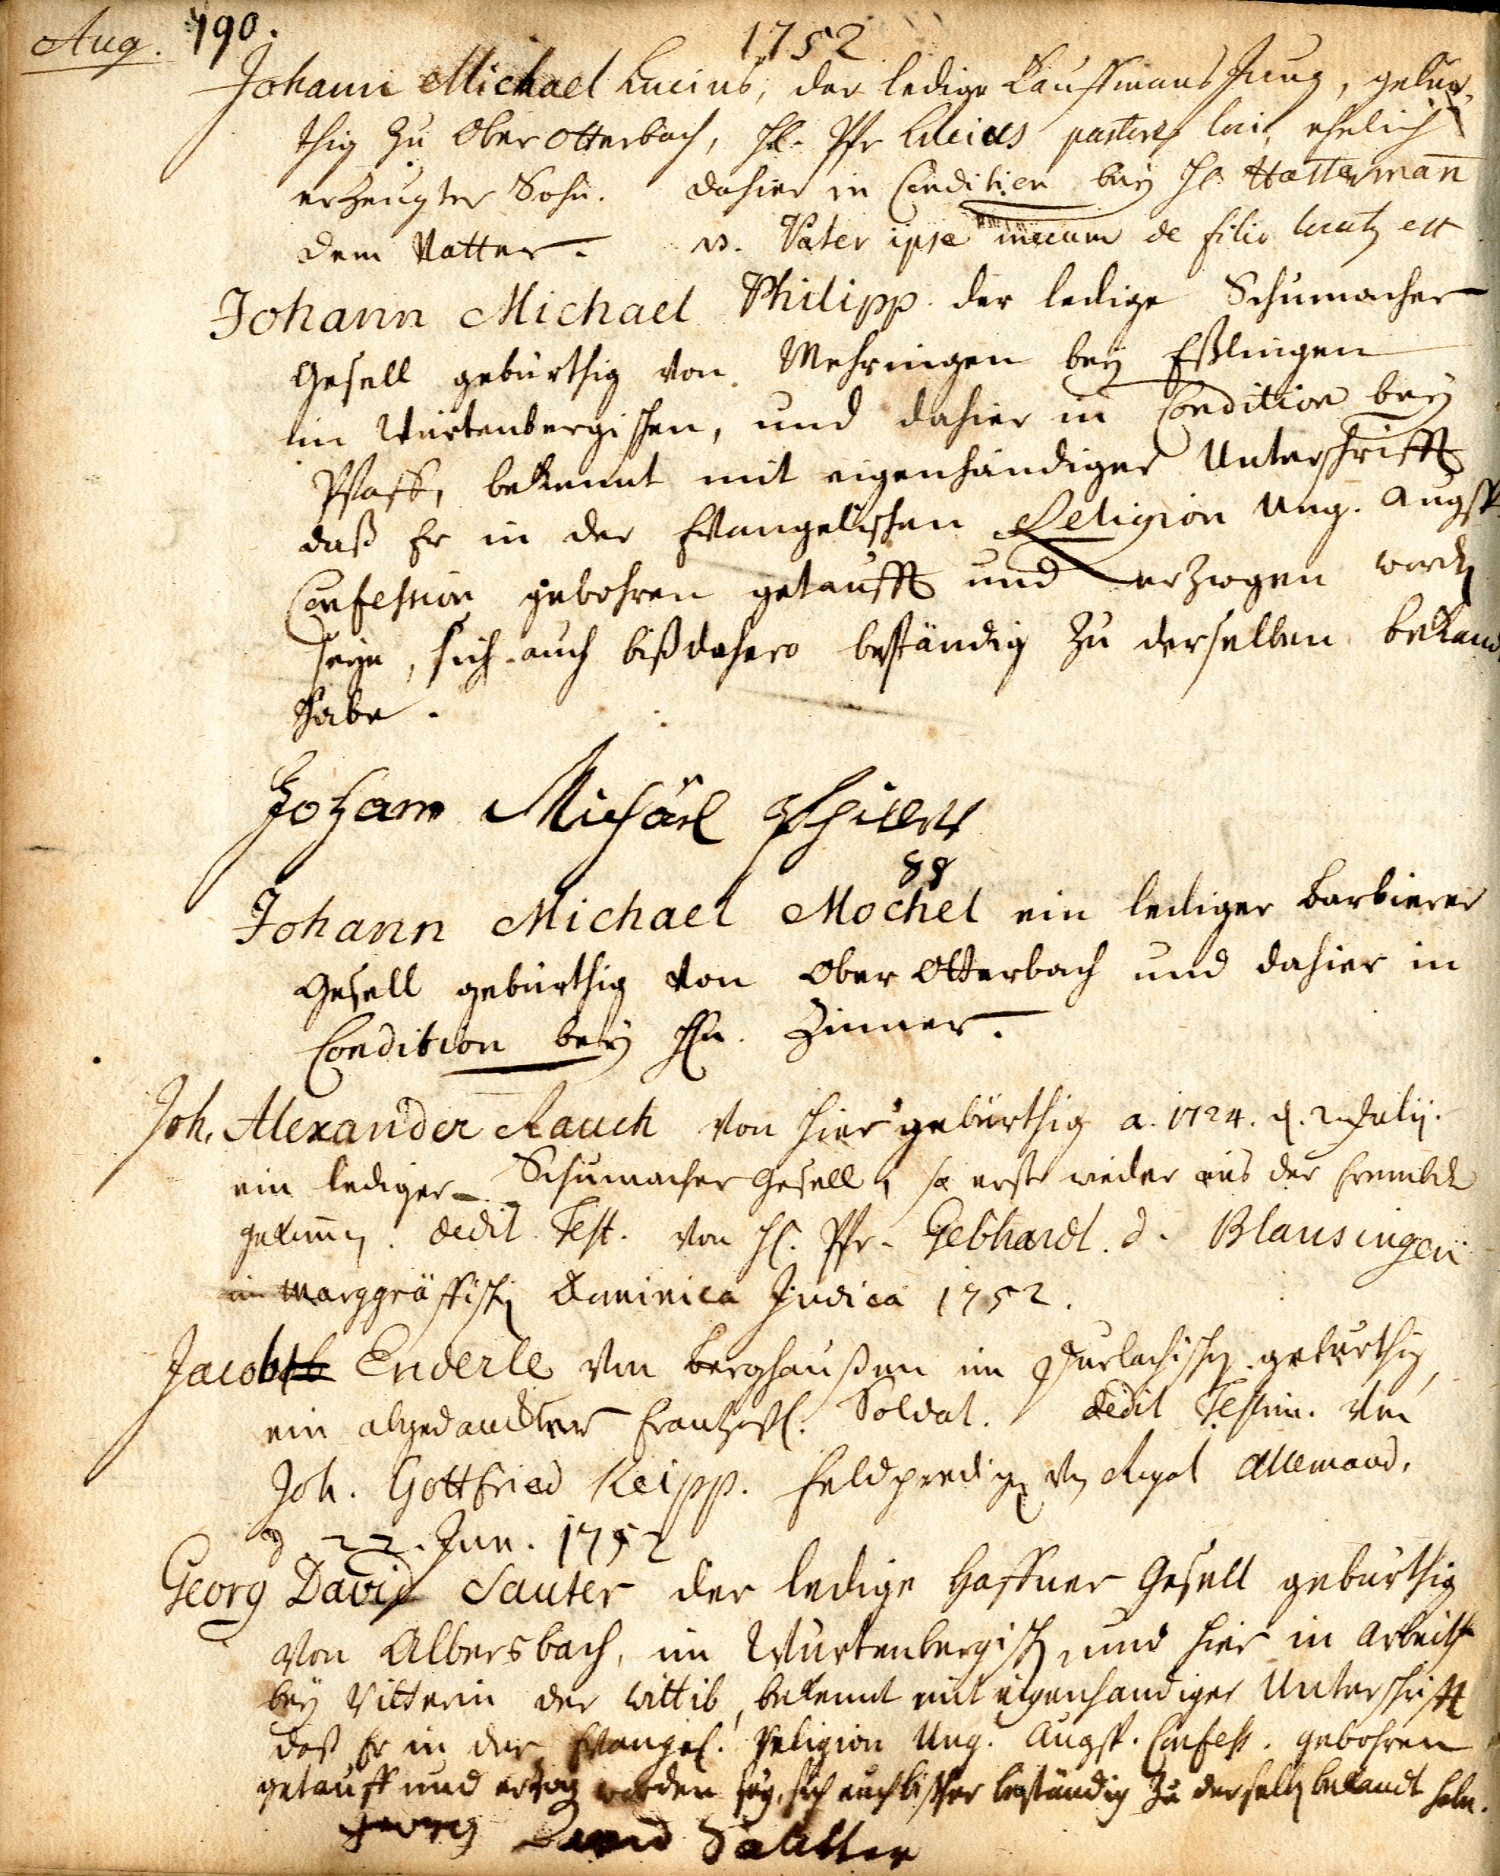 Aug. 190. 1752
Johann Michael Lucius, der ledige Kauffmanns Jung, gebür-
thig zu Ober Otterbach, H. Pfr Lucius pastoris loci, ehelich
erzeugter Sohn. dahier in Condition bey H. Hattermañ
dem Vatter. NB. Pater ipse mecum de filio locutus est
Johann Michael Philipp der ledige Schumacher
Gesell gebürthig von Mehringen bey Eßlingen
im Würtenbergischen, und dahier in Condition bey
Pfaff, bekennt mit eigenhändiger Unterschrifft
daß Er in der Evangelischen Religion Ung. Augsp.
Confession gebohren getaufft und erzogen worden
seye, sich auch bißdahero beständig zu derselben bekandt
habe.
Johann Michäel
88
Johann Michael Mochel ein lediger Barbierer
Gesell gebürthig von Ober Otterbach und dahier in
Condition bey Hn. Zinner.
Joh. Alexander Rauch von hier gebürthig a. 1724. d. 2. Julij.
ein lediger Schumacher Gesell, so erst wieder aus der frembde
gekommen. dedit Test. von H. Pfr. Gebhardt d. Blansingen
im Marggräffischen Dominica Judica 1752.
Jacob Enderle von Berghaußen im Durlachischen gebürthig,
ein abgedanckter frantzös. Soldat. dedit Testim. von
Joh. Gottfried Keipp. Feldprediger von Royal Allemand.
d 22. Jun. 1752
Georg David Sauter der ledige Haffner Gesell gebürthig
von Albersbach, im Würtenbergischen und hier in Arbeith
bey Vitterin der Wittib, bekennt mit eigenhandiger Unterschrifft
daß Er in der Evangel. Religion Ung. Augsp. Confess. gebohren
getaufft und erzogen worden sey, sich auch bißher beständig zu derselben bekandt habe.
Georg David Sautter